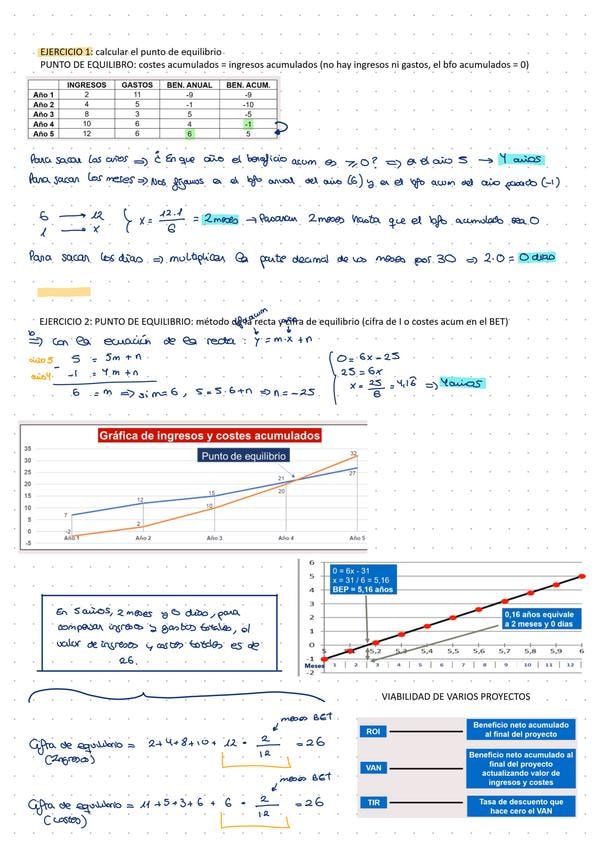 EJERCICIO 1: calcular el punto de equilibrio
PUNTO DE EQUILIBRO: costes acumulados = ingresos acumulados (no hay ingresos ni gastos, el bfo acumulados = 0)
INGRESOS GASTOS BEN. ANUAL BEN. ACUM.
Año 1 2 11 -9 -9
Año 2 4 5 -1 -10
Año 3 8 3 5 -5
Año 4 10 6 4 -1
Año 5 12 6 6 5
Para sacar los años => ¿En que año el beneficio acum es ≥ 0? => en el año 5 → 4 años
Para sacar los meses => Nos fijamos en el bfo anual del año (6) y en el bfo acum del año pasado (-1)
6 → 12
1 → x
x = 12·1 / 6 = 2 meses → Pasaran 2 meses hasta que el bfo acumulado sea 0
Para sacar los días => multiplicar la parte decimal de los meses por 30 => 2·0 = 0 días
EJERCICIO 2: PUNTO DE EQUILIBRIO: método de la recta y cifra de equilibrio (cifra de I o costes acum en el BET)
bfo acum año
=> con la ecuación de la recta: y = m·x + n
año 5 5 = 5m + n
año 4 - -1 = 4m + n
6 = m => si m = 6, 5 = 5·6 + n => n = -25
0 = 6x - 25
25 = 6x
x = 25/6 = 4,16 => 4 años
Gráfica de ingresos y costes acumulados
Punto de equilibrio
35
30
25
20
15
10
5
0
-5
7 12 15 21 27
-2 2 10 20 32
Año 1 Año 2 Año 3 Año 4 Año 5
En 5 años, 2 meses y 0 días, para
compensar ingresos y gastos totales, el
valor de ingresos y costos totales es de
26.
0 = 6x - 31
x = 31 / 6 = 5,16
BEP = 5,16 años
0,16 años equivale
a 2 meses y 0 días
6
5
4
3
2
1
0
-1
-2
5 5,2 5,3 5,4 5,5 5,6 5,7 5,8 5,9 6
Meses 1 2 3 4 5 6 7 8 9 10 11 12
Cifra de equilibrio = 2+4+8+10+ 12 · 2/12 = 26
(Ingresos)
meses BET
Cifra de equilibrio = 11+5+3+6+ 6 · 2/12 = 26
(costes)
meses BET
VIABILIDAD DE VARIOS PROYECTOS
ROI
Beneficio neto acumulado
al final del proyecto
VAN
Beneficio neto acumulado al
final del proyecto
actualizando valor de
ingresos y costes
TIR
Tasa de descuento que
hace cero el VAN